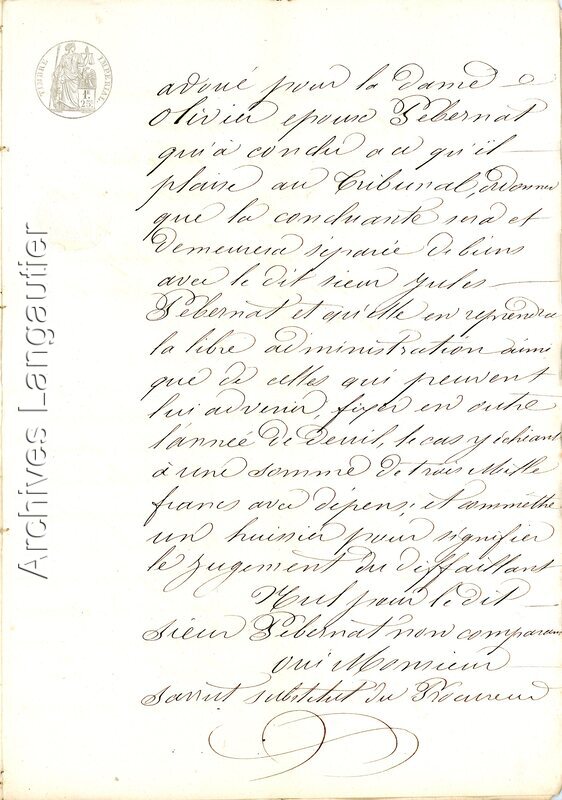 TIMBRE IMPERIAL
1F.
25c.
avoué pour la dame
Olivier epouse Pebernat
qui a conclu a ce qu'il
plaise au Tribunal, ordonner
que la concluante sera et
demeurera séparée de biens
avec le dit sieur Jules
Pebernat et qu'elle en reprendra
la libre administration ainsi
que de celles qui peuvent
lui advenir, fixer en outre
l'année de deuil, le cas y échéant
à une somme de trois Mille
francs avec dépens; et commettre
un huissier pour signifier
le Jugement du deffaillant
Nul pour le dit
sieur Pebernat non comparant
oui Monsieur
Sarrut substitut du Procureur
Archives Langautier